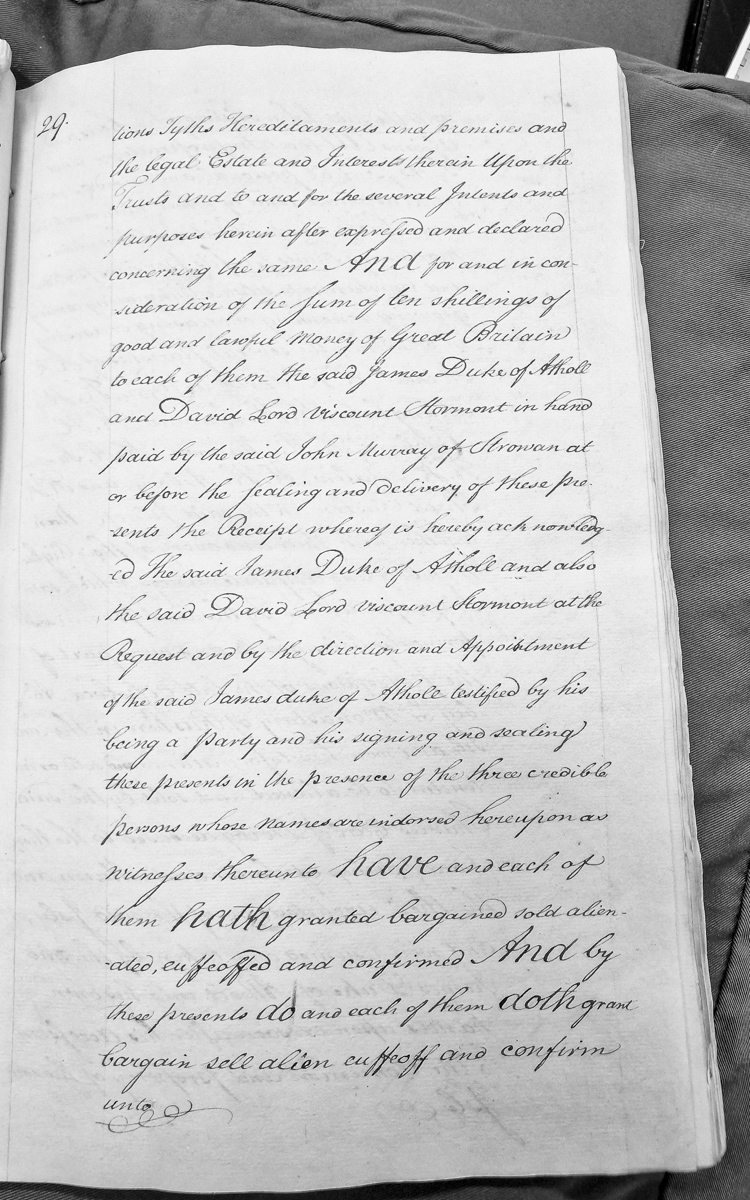 29.
tions Tyths Hereditaments and premises and
the legal Estate and Interests therein Upon the
Trusts and to and for the several Intents and
purposes herein after expressed and declared
concerning the same And for and in con-
-sideration of the Sum of ten shillings of
good and lawful Money of Great Britain
to each of them the said James Duke of Atholl
and David Lord Viscount Stormont in hand
paid by the said John Murray of Strowan at
or before the Sealing and Delivery of these Pre-
-sents the Receipt whereof is hereby acknowledg-
-ed The said James Duke of Atholl and also
the said David Lord Viscount Stormont at the
Request and by the direction and Appointment
of the said James duke of Atholl testified by his
being a party and his signing and sealing
these presents in the presence of the three credible
persons whose Names are indorsed hereupon as
Witnesses thereunto have and each of
them hath granted bargained sold alien-
-ated, enffeoffed and confirmed And by
these presents do and each of them doth grant
bargain sell alien enffeoff and confirm
unto